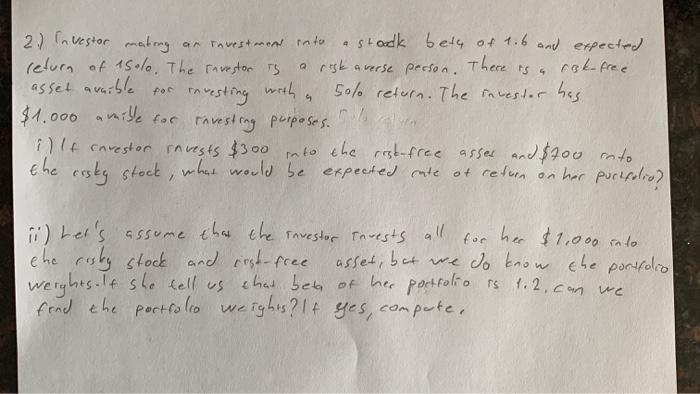 2.) Investor making an investment into a stoodk beta of 1.6 and expected
return of 15%. The investor is a risk averse person. There is a risk-free
asset avaible for investing with a 5% return. The investor has
$1.000 avaible for investing purposes.
i) If investor invests $300 into the risk-free asset and $700 into
the risky stock, what would be expected rate of return on her portfolio?
ii) Let's assume that the investor invests all for her $1,000 into
the risky stock and risk-free asset, but we do know the portfolio
weights. If she tell us that beta of her portfolio is 1.2, can we
find the portfolio weights? If yes, compute.